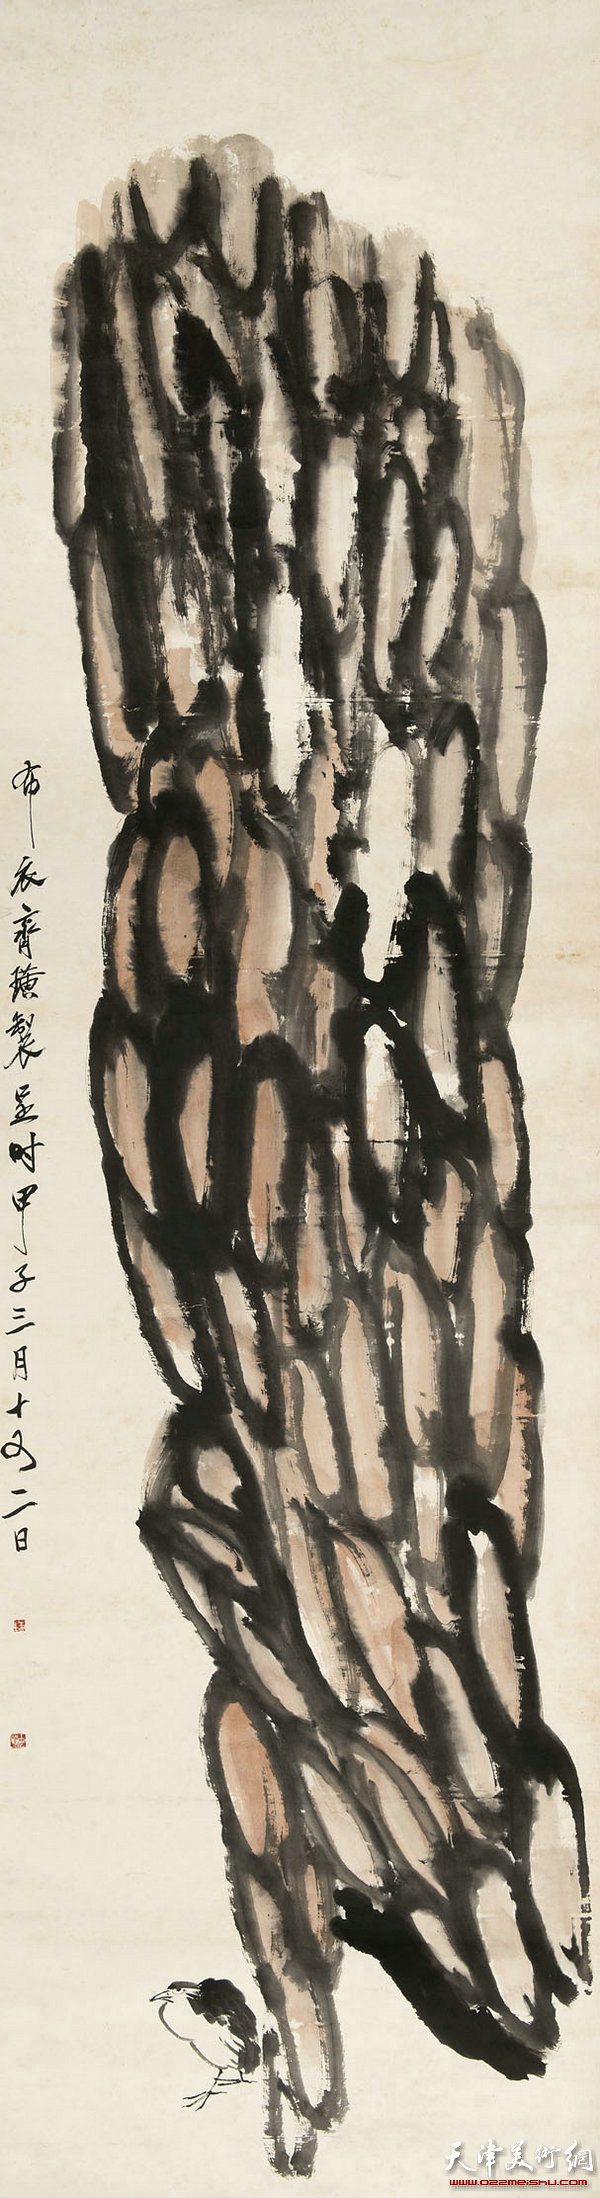 布衣齊璜製是时甲子三月十又二日
天津美術網
www.022meishu.com